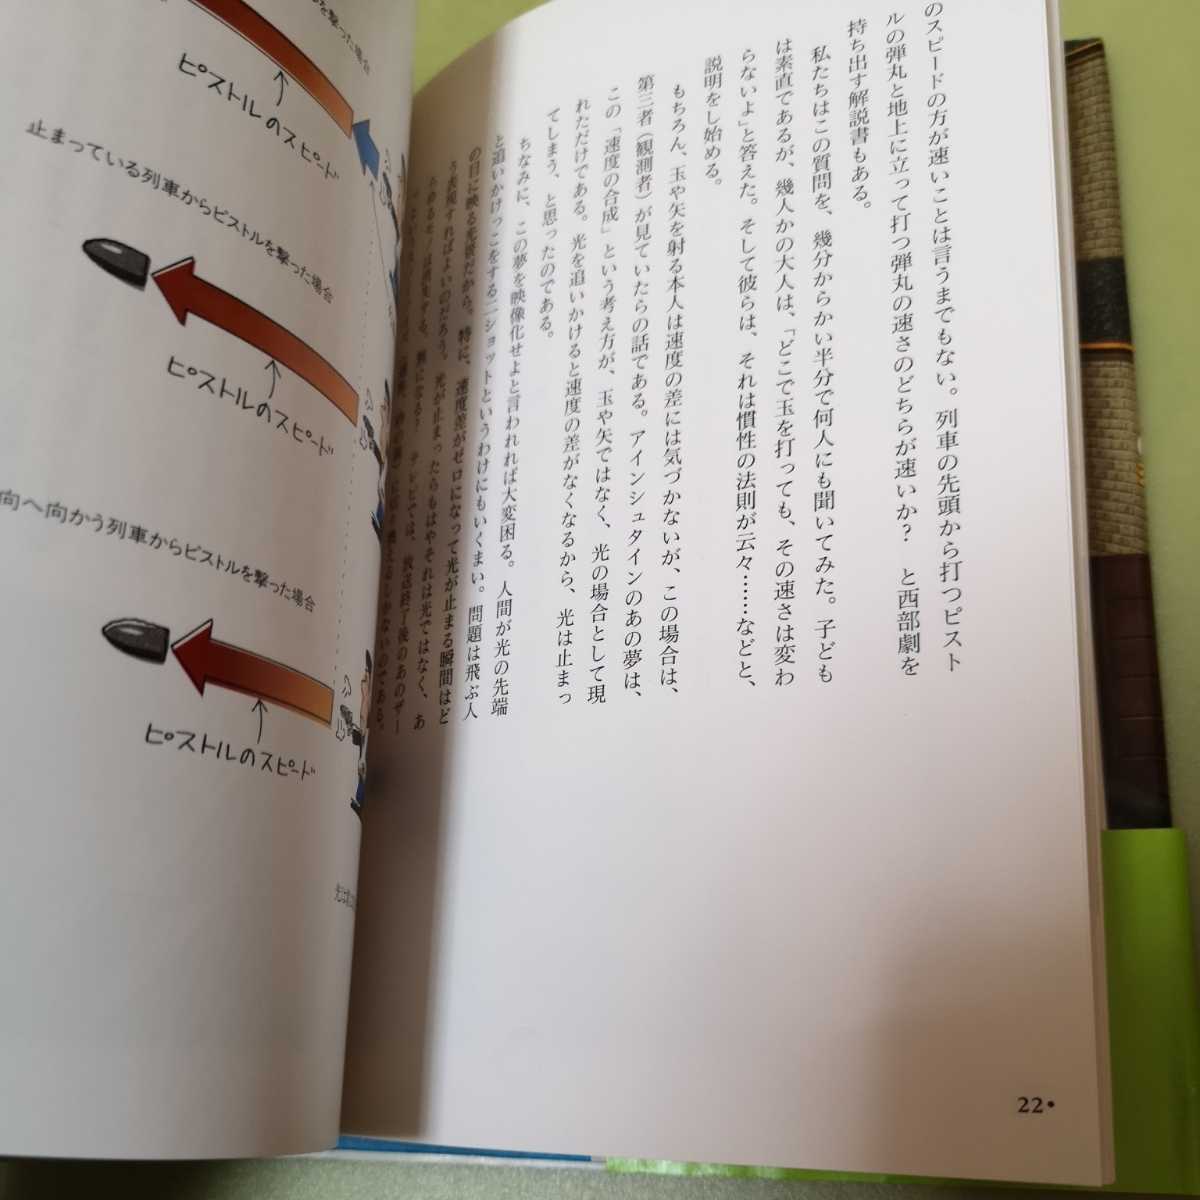 のスピードの方が速いことは言うまでもない。列車の先頭から打つピスト
ルの弾丸と地上に立って打つ弾丸の速さのどちらが速いか？　と西部劇を
持ち出す解説書もある。
私たちはこの質問を、幾分からかい半分で何人にも聞いてみた。子ども
は素直であるが、幾人かの大人は、「どこで玉を打っても、その速さは変わ
らないよ」と答えた。そして彼らは、それは慣性の法則が云々……などと、
説明をし始める。
もちろん、玉や矢を射る本人は速度の差には気づかないが、この場合は、
第三者（観測者）が見ていたらの話である。アインシュタインのあの夢は、
この「速度の合成」という考え方が、玉や矢ではなく、光の場合として現
れただけである。光を追いかけると速度の差がなくなるから、光は止まっ
てしまう、と思ったのである。
ちなみに、この夢を映像化せよと言われれば大変困る。人間が光の先端
と追いかけっこをする二ショットというわけにもいくまい。問題は飛ぶ人
の目に映る光景だから。特に、速度差がゼロになって光が止まる瞬間はど
う表現すればよいのだろう。光が止まったらもはやそれは光ではなく、あ
テレビでは、放送終了後のあのザー
しかないのである。
22•
を撃った場合
ピストルのスピード
止まっている列車からピストルを撃った場合
ピストルのスピード
向へ向かう列車からピストルを撃った場合
ピストルのスピード